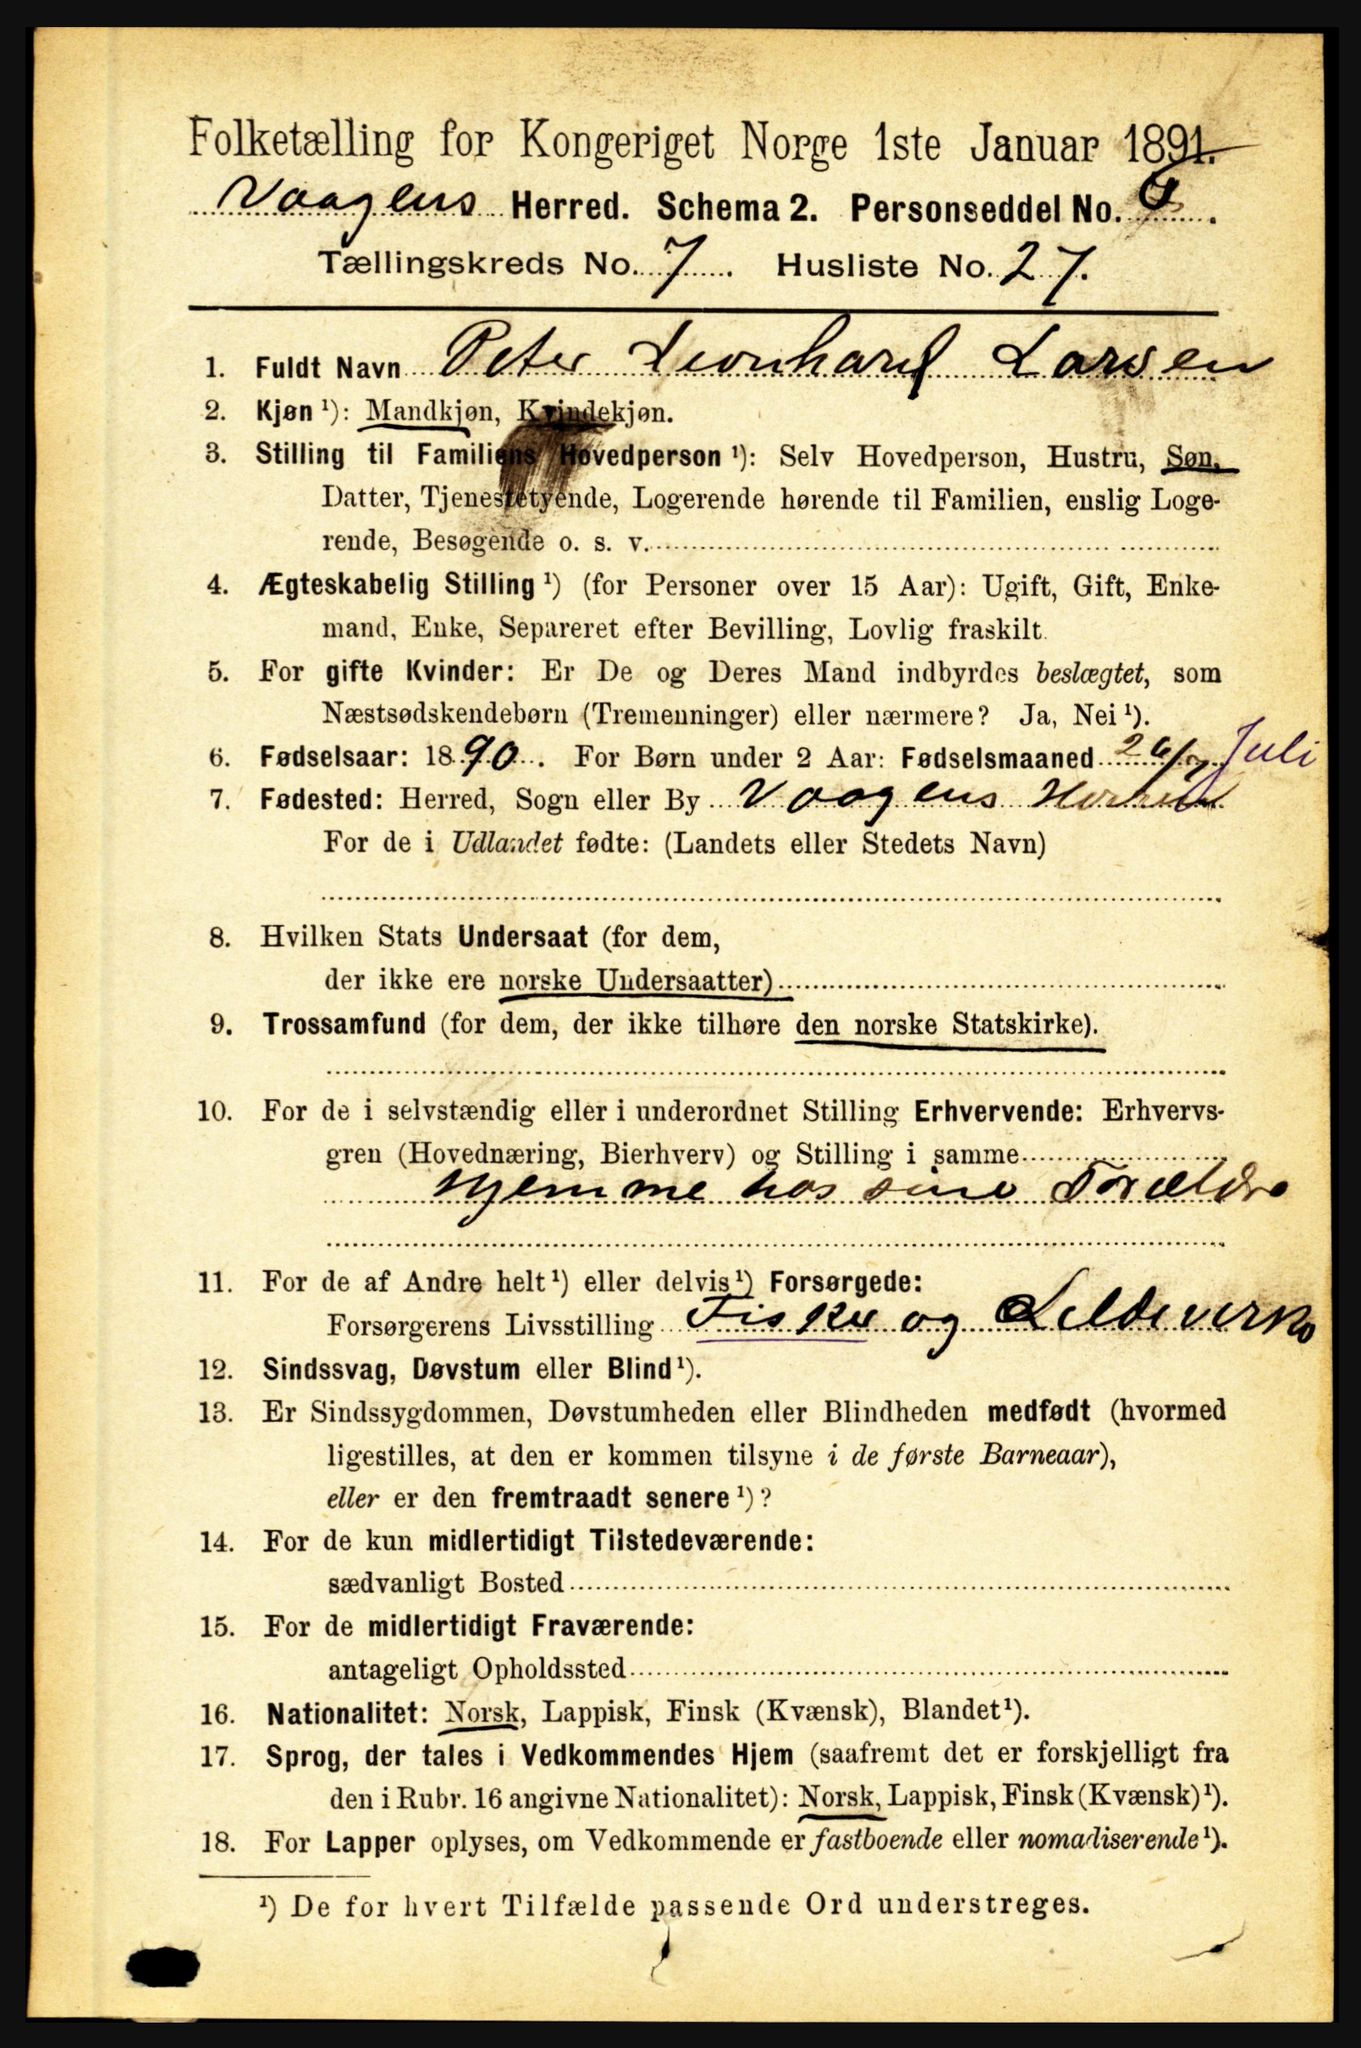 Folketælling for Kongeriget Norge 1ste Januar 1891.
Vaagens Herred. Schema 2. Personseddel No. .
Tællingskreds No. 7. Husliste No. 27.
1. Fuldt Navn Peter Leonhard Larsen
2. Kjøn ¹): Mandkjøn, Kvindekjøn.
3. Stilling til Familiens Hovedperson ¹): Selv Hovedperson, Hustru, Søn,
Datter, Tjenestetyende, Logerende hørende til Familien, enslig Loge-
rende, Besøgende o. s. v.
4. Ægteskabelig Stilling ¹) (for Personer over 15 Aar): Ugift, Gift, Enke-
mand, Enke, Separeret efter Bevilling, Lovlig fraskilt.
5. For gifte Kvinder: Er De og Deres Mand indbyrdes beslægtet, som
Næstsødskendebørn (Tremenninger) eller nærmere? Ja, Nei ¹).
6. Fødselsaar: 1890. For Børn under 2 Aar: Fødselsmaaned 26/7 Juli
7. Fødested: Herred, Sogn eller By Vaagens Herred
For de i Udlandet fødte: (Landets eller Stedets Navn)
8. Hvilken Stats Undersaat (for dem,
der ikke ere norske Undersaatter)
9. Trossamfund (for dem, der ikke tilhøre den norske Statskirke).
10. For de i selvstændig eller i underordnet Stilling Erhvervende: Erhvervs-
gren (Hovednæring, Bierhverv) og Stilling i samme
Hjemme hos sine Forældre
11. For de af Andre helt ¹) eller delvis ¹) Forsørgede:
Forsørgerens Livsstilling Fisker og
12. Sindssvag, Døvstum eller Blind ¹).
13. Er Sindssygdommen, Døvstumheden eller Blindheden medfødt (hvormed
ligestilles, at den er kommen tilsyne i de første Barneaar),
eller er den fremtraadt senere ¹)?
14. For de kun midlertidigt Tilstedeværende:
sædvanligt Bosted
15. For de midlertidigt Fraværende:
antageligt Opholdssted
16. Nationalitet: Norsk, Lappisk, Finsk (Kvænsk), Blandet ¹).
17. Sprog, der tales i Vedkommendes Hjem (saafremt det er forskjelligt fra
den i Rubr. 16 angivne Nationalitet): Norsk, Lappisk, Finsk (Kvænsk) ¹).
18. For Lapper oplyses, om Vedkommende er fastboende eller nomadiserende ¹).
¹) De for hvert Tilfælde passende Ord understreges.